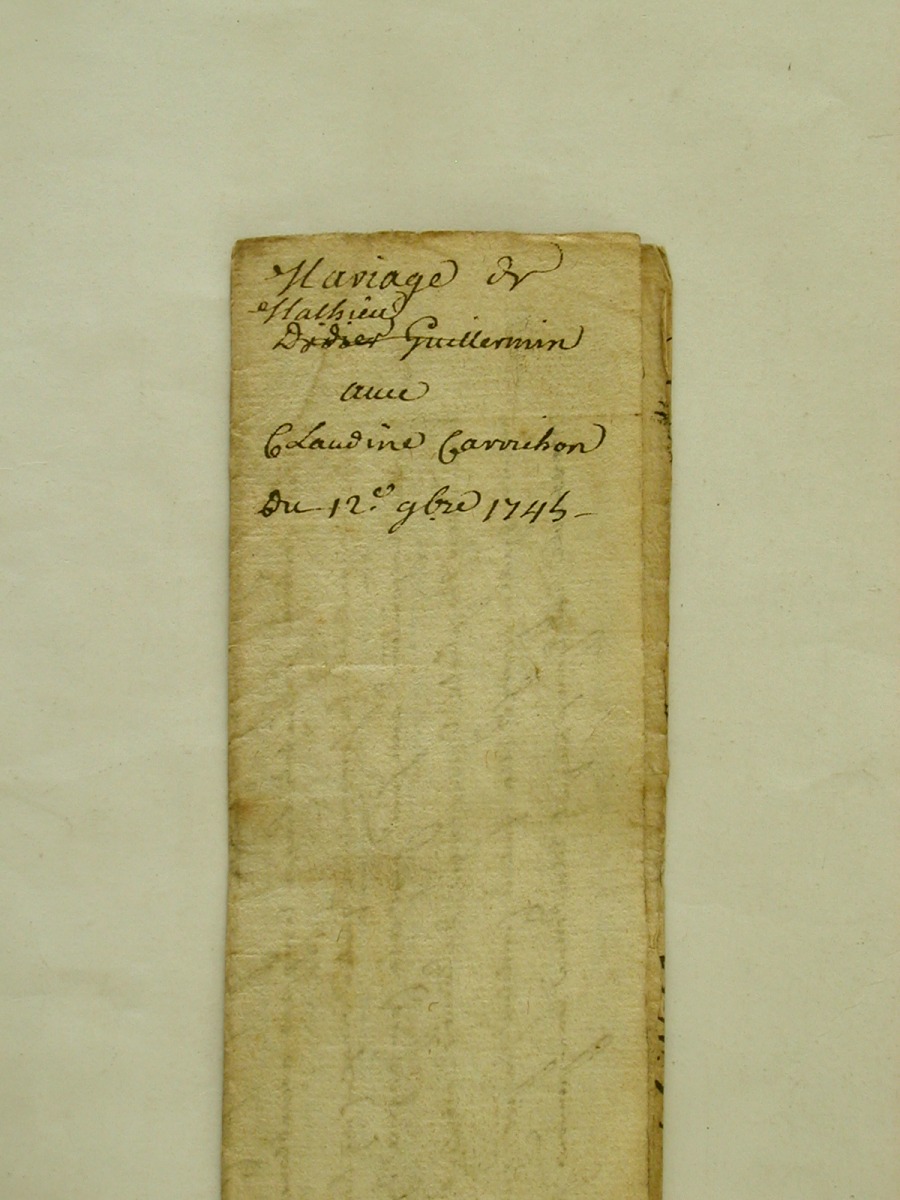 Mariage de
Mathieu
Didier Guillermin
avec
Claudine Carrichon
du 12.e 9bre 1745